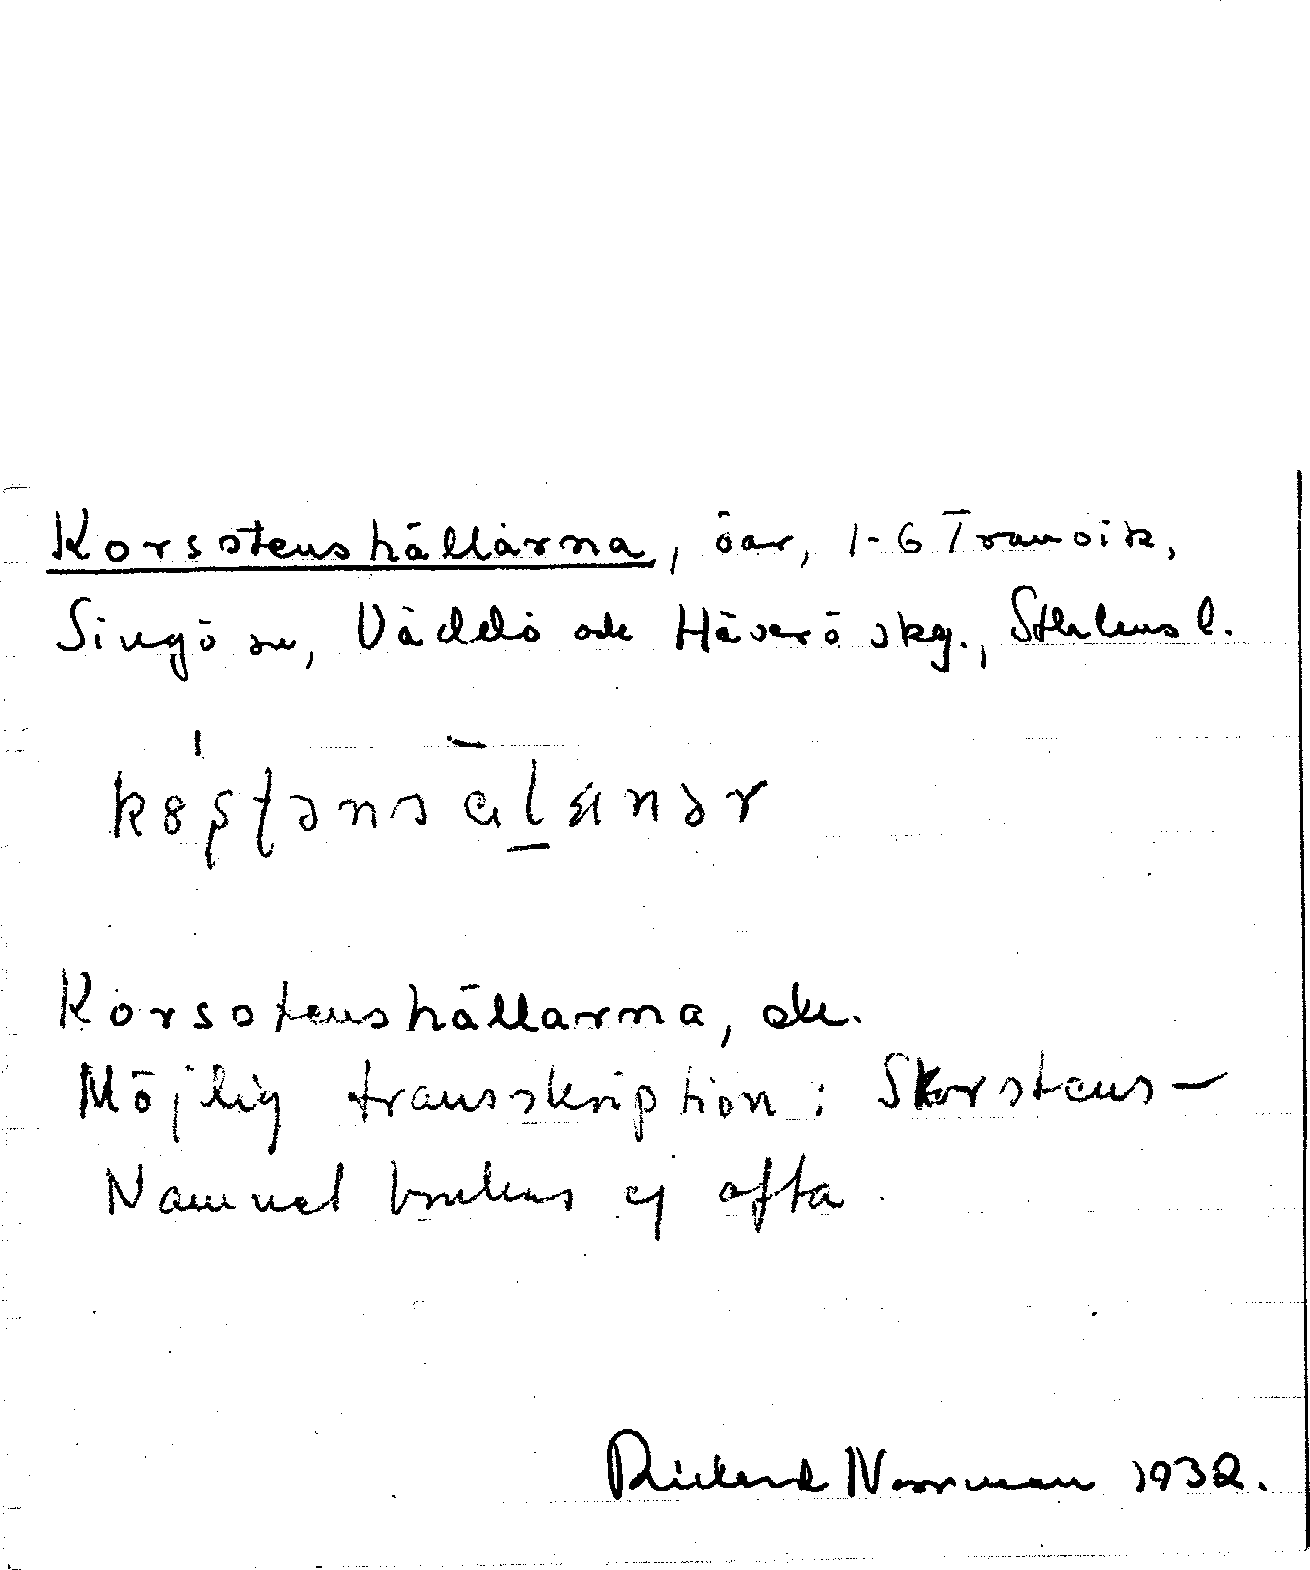 Korsstenshällarna, öar, 1-6 Tranvik,
Singö sn, Väddö och Häverö skg., Sthlms l.
Korsstenshällarna, de.
Möjlig transskription: Skorstens-
Namnet brukas ej ofta.
Rickard Norrman 1932.